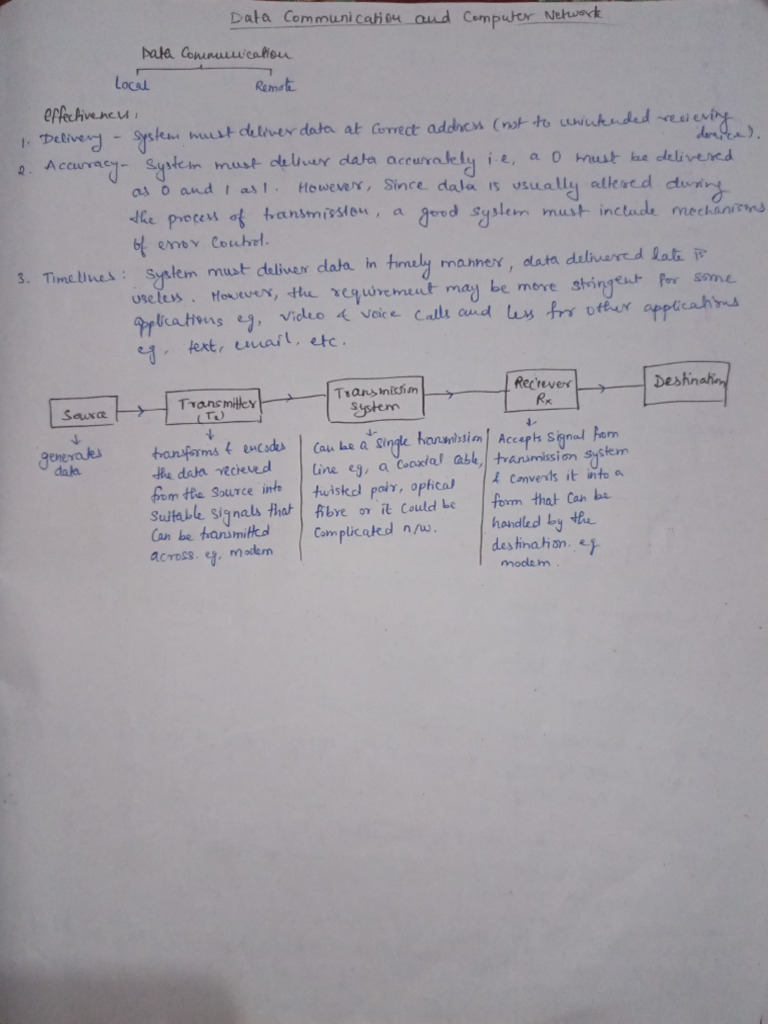 Data Communication and Computer Network
Data Communication
Local Remote
Effectiveness:
1. Delivery - System must deliver data at correct address (not to unintended recieving
device).
2. Accuracy - System must deliver data accurately i.e, a 0 must be delivered
as 0 and 1 as 1. However, since data is usually altered during
the process of transmission, a good system must include mechanisms
of error control.
3. Timelines: System must deliver data in timely manner, data delivered late is
useless. However, the requirement may be more stringent for some
applications eg, video & voice calls and less for other applications
eg, text, email, etc.
Source
Transmitter
(Tx)
Transmission
System
Reciever
Rx
Destination
generates
data
transforms & encodes
the data recieved
from the source into
suitable signals that
can be transmitted
across. eg, modem
Can be a single transmission
line eg, a coaxial cable,
twisted pair, optical
fibre or it could be
complicated n/w.
Accepts signal from
transmission system
& converts it into a
form that can be
handled by the
destination. eg
modem.